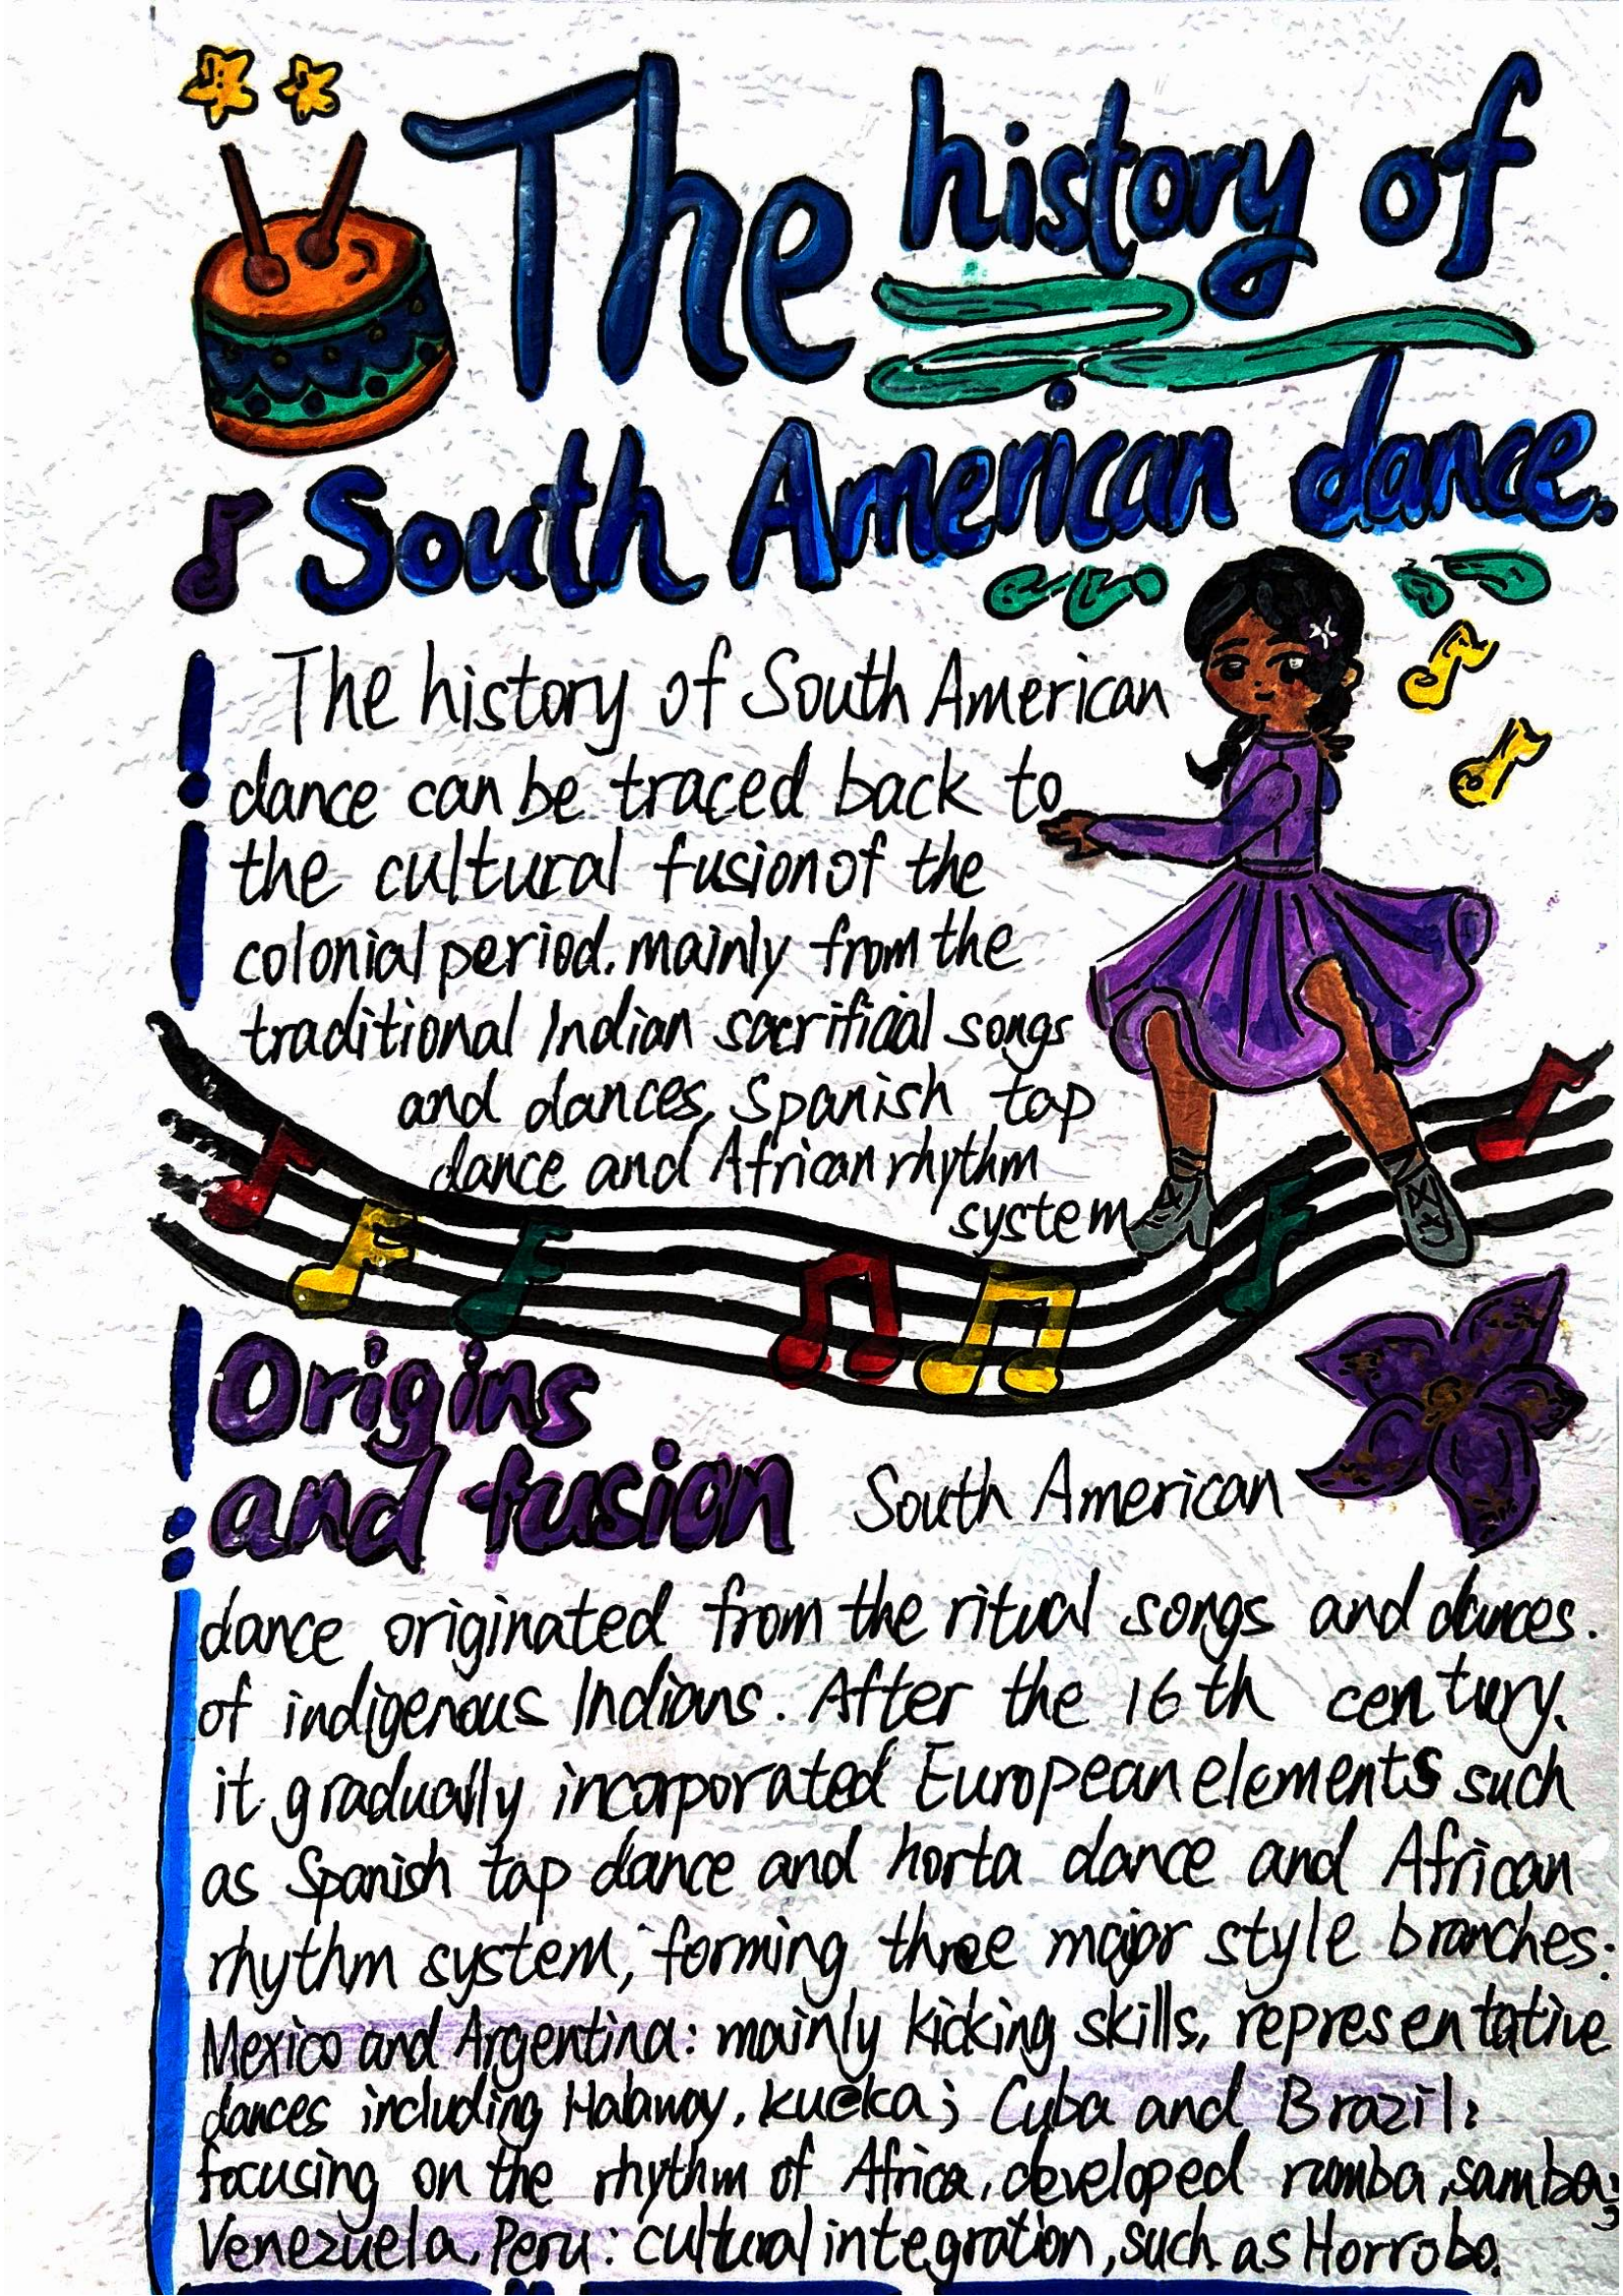 The history of
South American dance.
The history of South American
dance can be traced back to
the cultural fusion of the
colonial period. mainly from the
traditional Indian sacrificial songs
and dances, Spanish tap
dance and African rhythm
system
Origins
and fusion South American
dance originated from the ritual songs and dances.
of indigenous Indians. After the 16th century.
it gradually incorporated European elements such
as Spanish tap dance and horta dance and African
rhythm system, forming three major style branches:
Mexico and Argentina: mainly kicking skills, representative
dances including Halaway. kueka; Cuba and Brazil:
focusing on the rhythm of Africa, developed rumba, samba;
Venezuela, Peru: cultural integration, such as Horrobo.